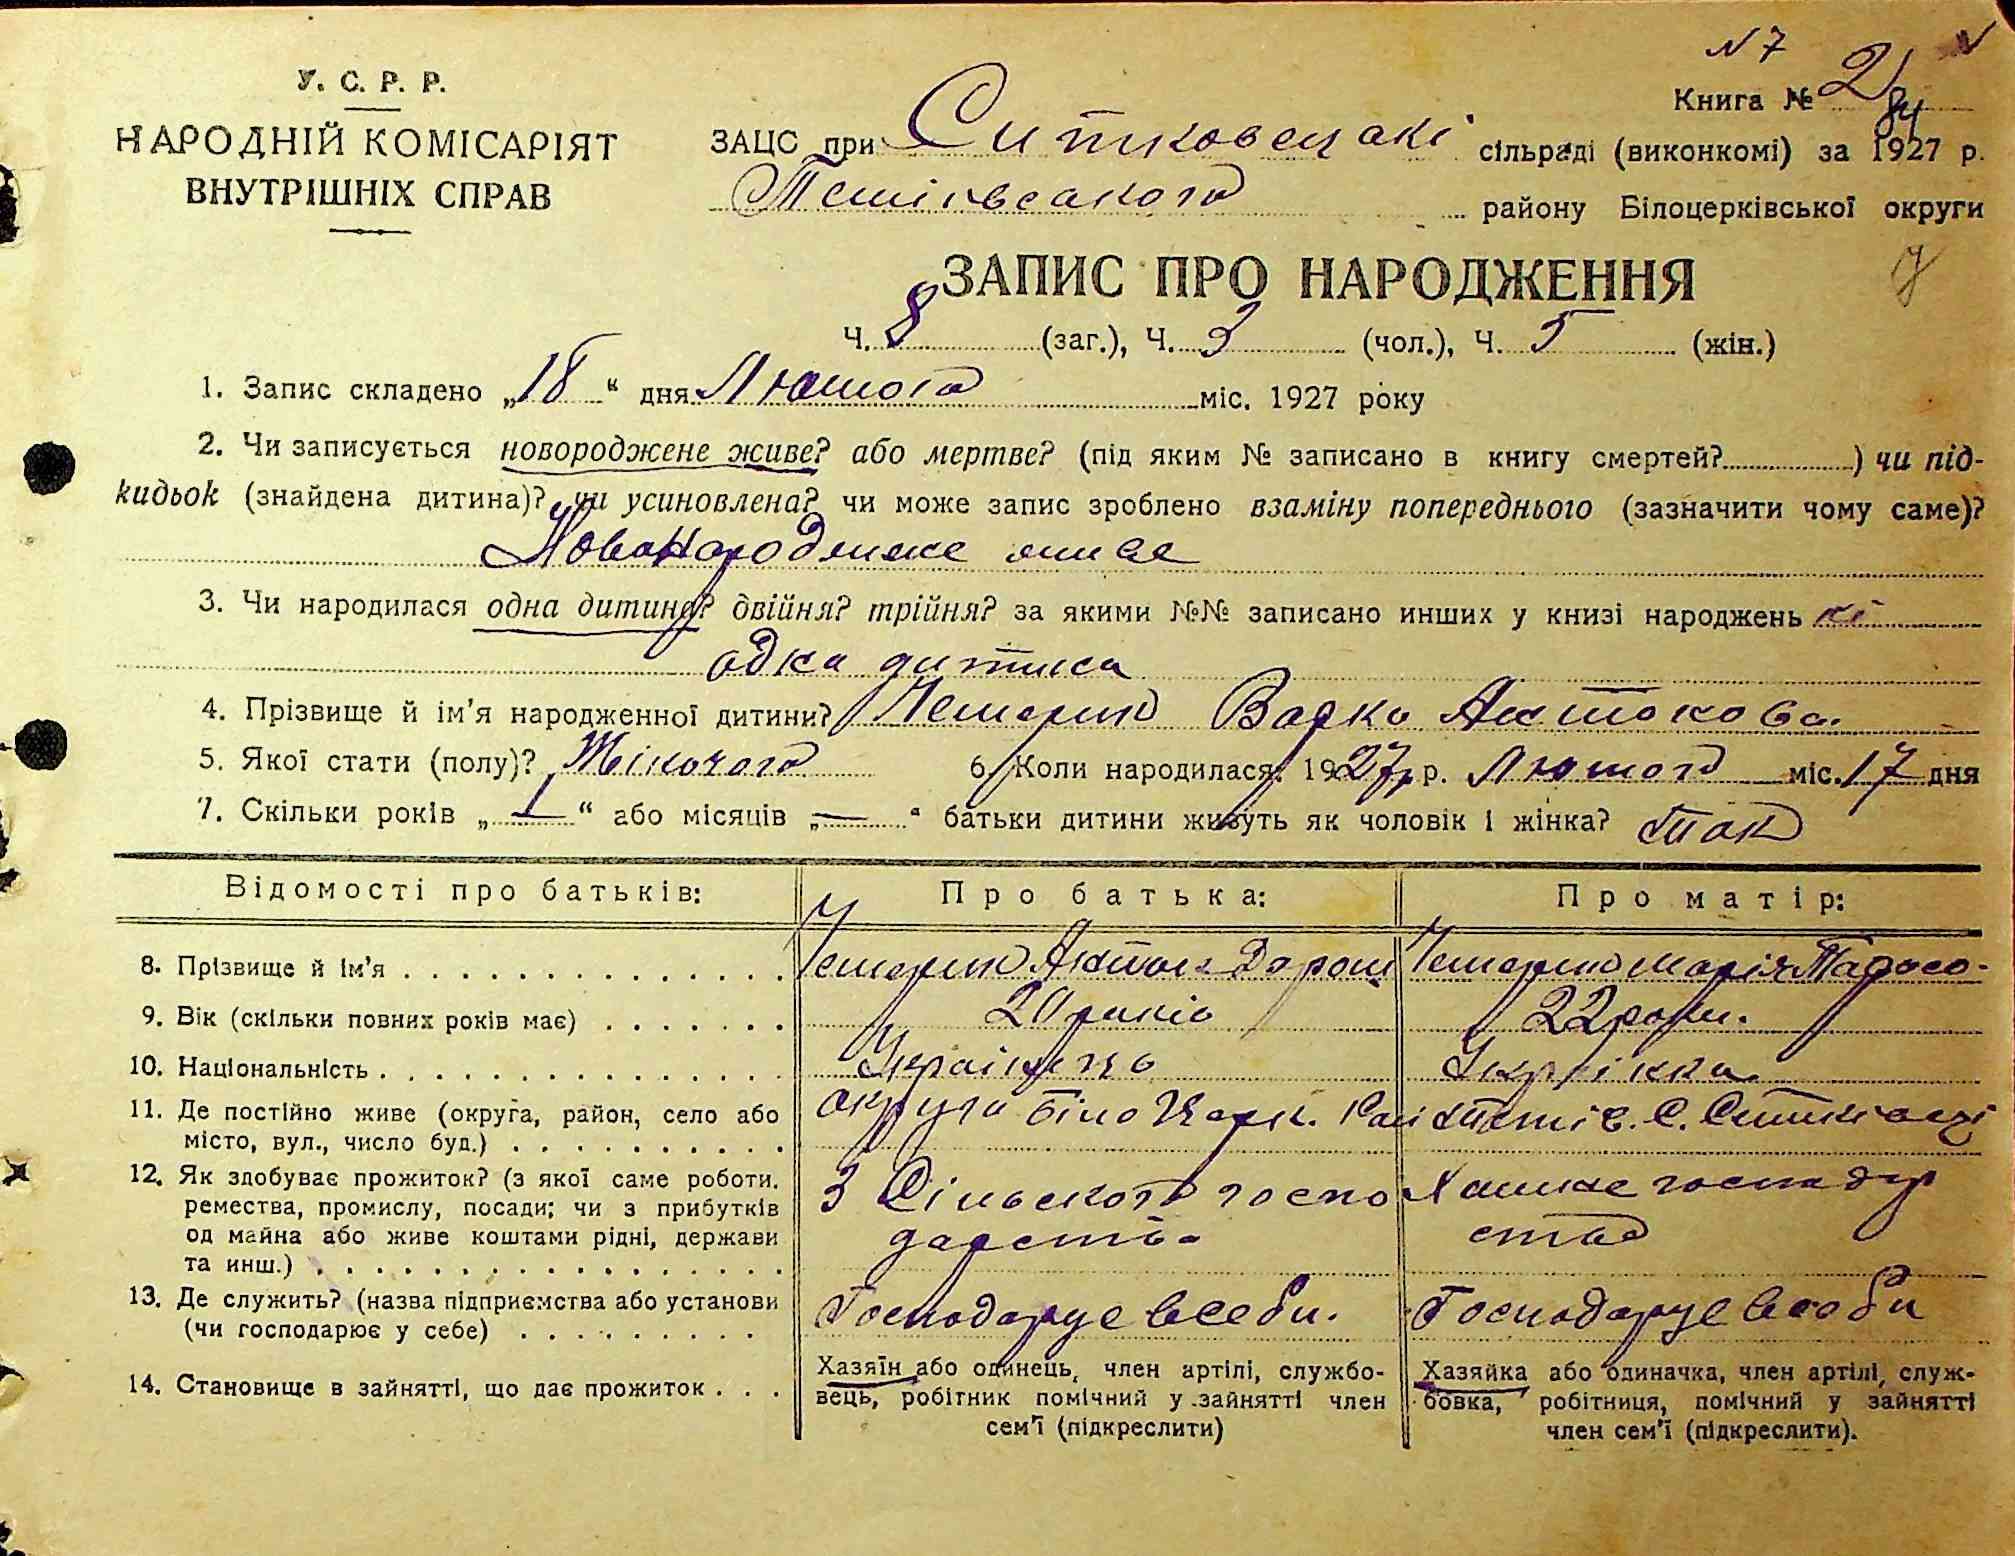 N 7
У. С. Р. Р.
Книга № 2
НАРОДНІЙ КОМІСАРІЯТ
ВНУТРІШНІХ СПРАВ
ЗАЦС при Ситковецакі сільраді (виконкомі) за 1927 р.
Тетіївського району Білоцерківської округи
ЗАПИС ПРО НАРОДЖЕННЯ
Ч. 8 (заг.), Ч. 3 (чол.), Ч. 5 (жін.)
1. Запис складено „18“ дня Лютого міс. 1927 року
2. Чи записується новороджене живе? або мертве? (під яким № записано в книгу смертей? ) чи під-
кидьок (знайдена дитина)? чи усиновлена? чи може запис зроблено взаміну попереднього (зазначити чому саме)?
живе
3. Чи народилася одна дитина? двійня? трійня? за якими №№ записано инших у книзі народжень ні
одна дитина
4. Прізвище й ім’я народженної дитини? Варка Антонова
5. Якої стати (полу)? Жіночого 6. Коли народилася? 1927 р. Лютого міс. 17 дня
7. Скільки років „1“ або місяців „—“ батьки дитини живуть як чоловік і жінка? так
Відомості про батьків: Про батька: Про матір:
8. Прізвище й ім’я Антон Дорош Марія Тарасо-
9. Вік (скільки повних років має) 20 років 22 роки.
10. Національність Українець Українка
11. Де постійно живе (округа, район, село або округа Біло Церк. Район Тетіїв. С.
місто, вул., число буд.)
12. Як здобуває прожиток? (з якої саме роботи, З Сільского госпо
ремества, промислу, посади; чи з прибутків дарства
од майна або живе коштами рідні, держави
та инш.)
13. Де служить? (назва підприємства або установи Господарує в себи. Господарує в себи
(чи господарює у себе)
14. Становище в зайнятті, що дає прожиток
Хазяїн або одинець, член артілі, службо-
вець, робітник помічний у зайнятті член
сем’ї (підкреслити)
Хазяйка або одиначка, член артілі, служ-
бовка, робітниця, помічний у зайнятті
член сем’ї (підкреслити).